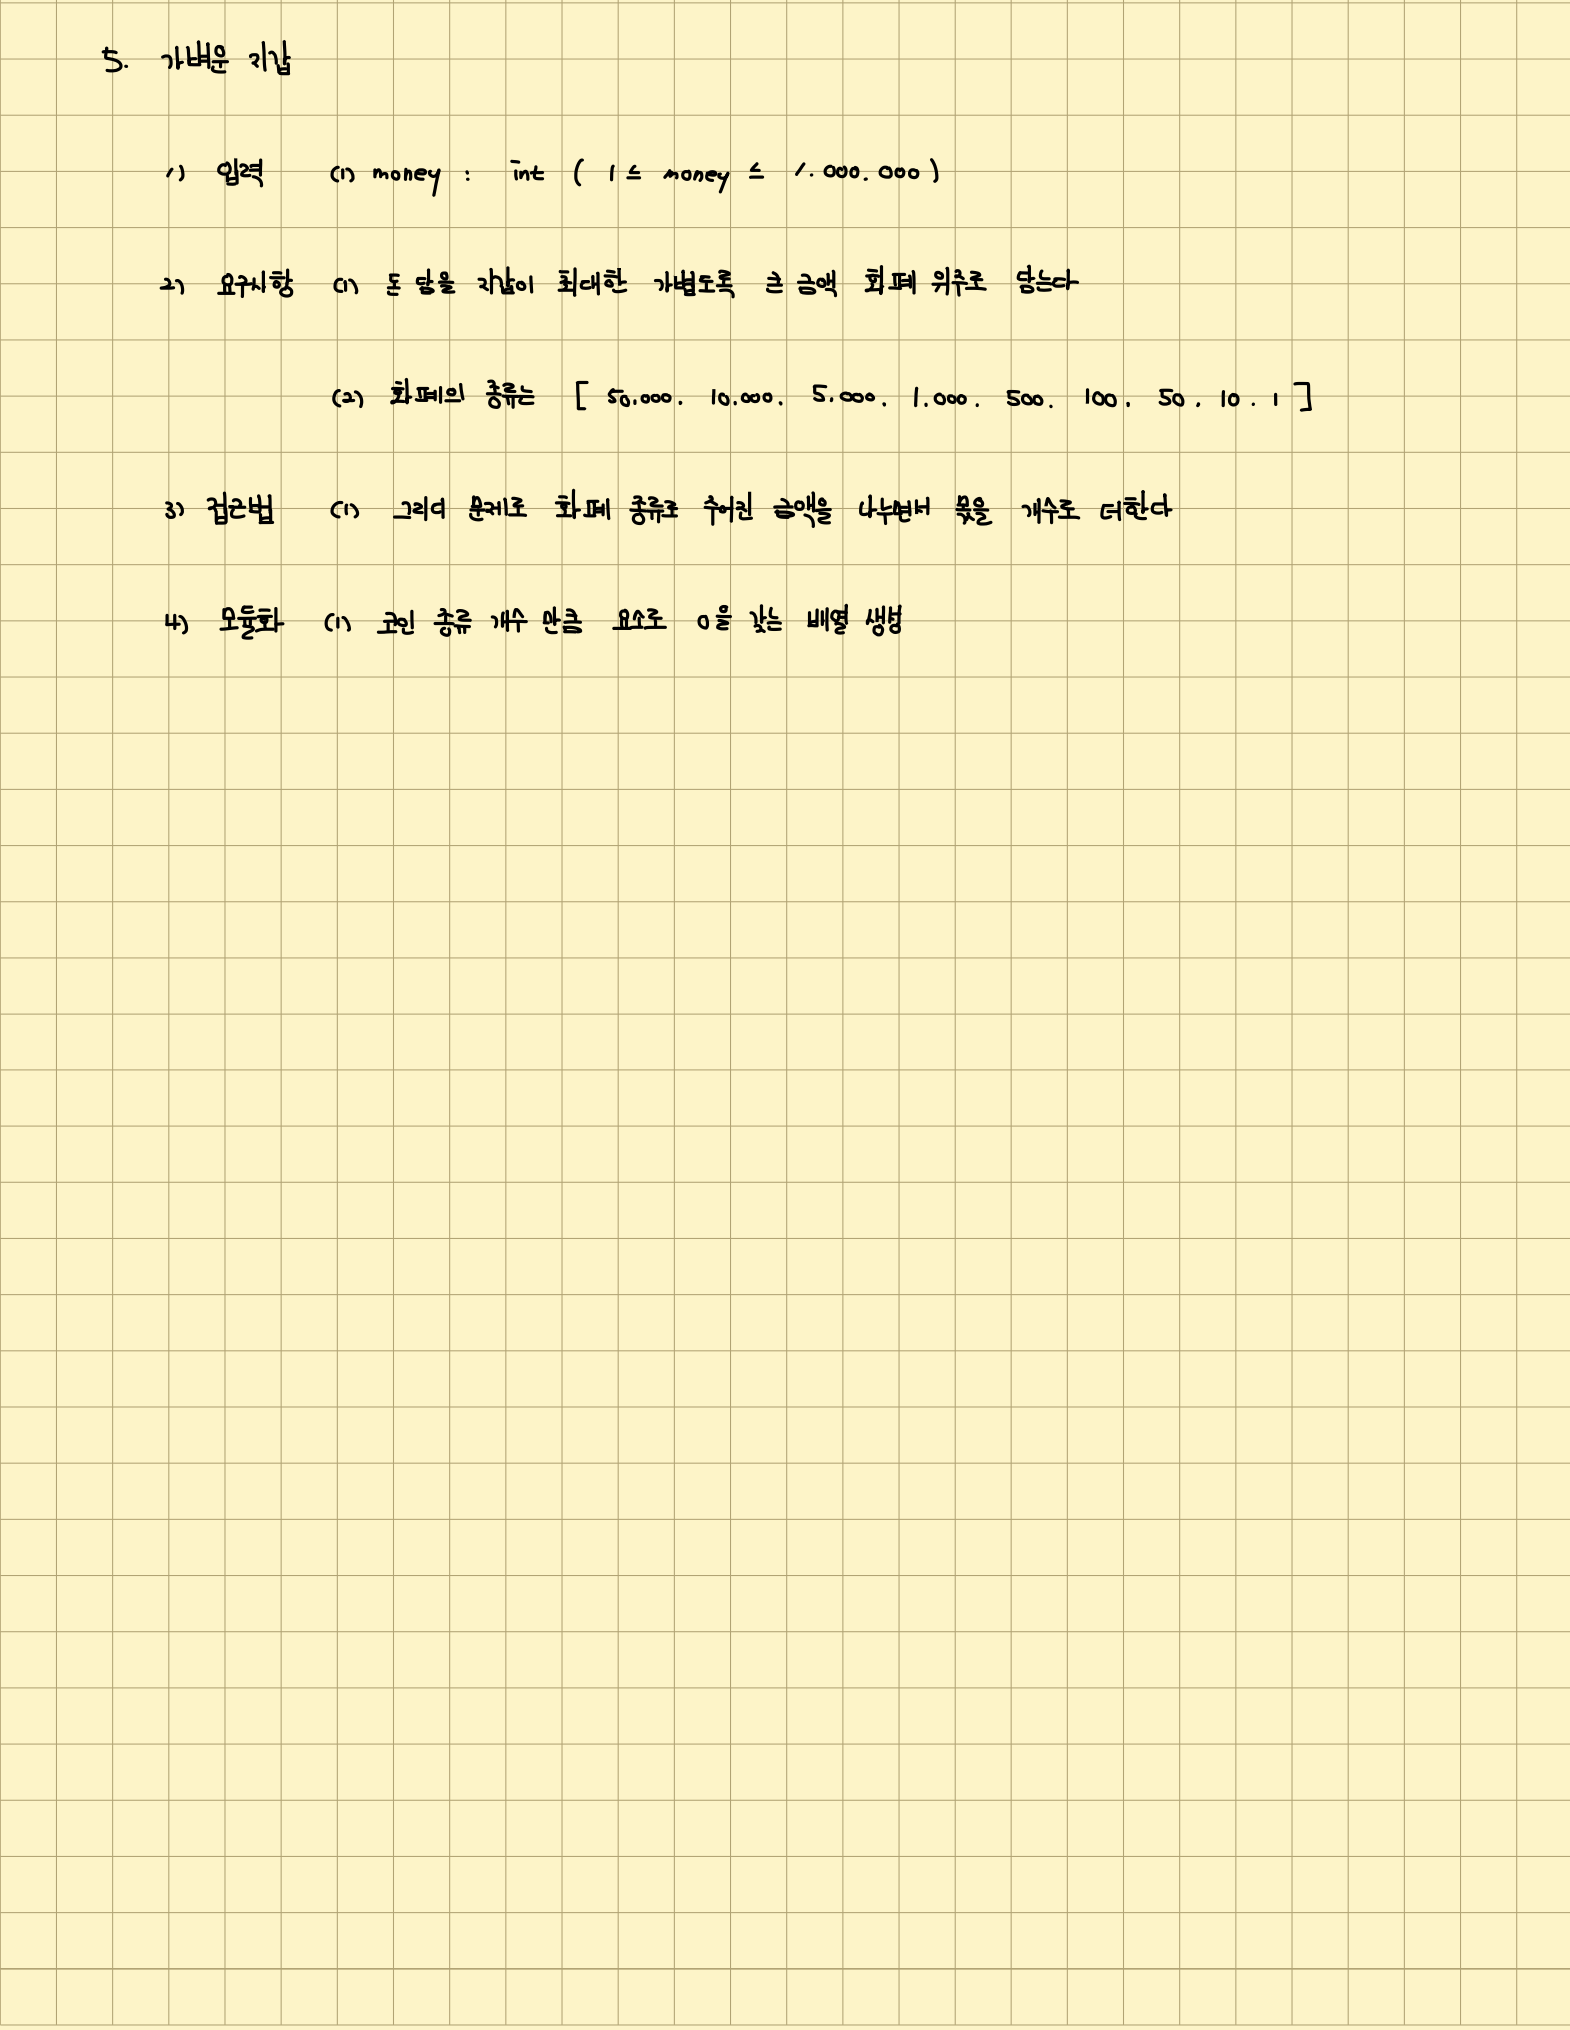 5. 가벼운 지갑
1) 입력 (1) money : int ( 1 ≤ money ≤ 1.000.000 )
2) 요구사항 (1) 돈 담을 지갑이 최대한 가볍도록 큰 금액 화폐 위주로 담는다
(2) 화폐의 종류는 [ 50.000. 10.000. 5.000. 1.000. 500. 100. 50. 10. 1 ]
3) 접근법 (1) 그리디 문제로 화폐 종류로 주어진 금액을 나누면서 몫을 개수로 더한다
4) 모듈화 (1) 코인 종류 개수 만큼 요소로 0을 갖는 배열 생성